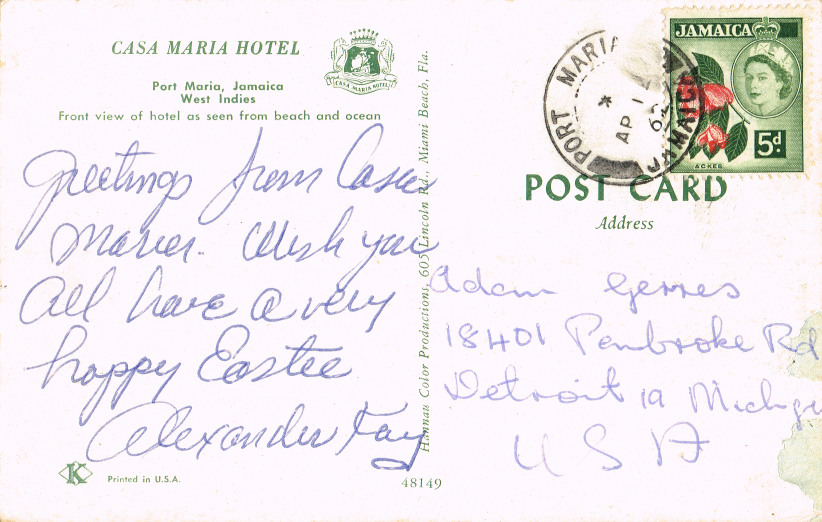 CASA MARIA HOTEL
CASA MARIA HOTEL
Port Maria, Jamaica
West Indies
Front view of hotel as seen from beach and ocean
Greetings from Casa
Maria. Wish you
all have a very
happy Easter
Alexander Fay
K
Printed in U.S.A.
Hannau Color Productions, 605 Lincoln Rd., Miami Beach, Fla.
48149
PORT MARIA
JAMAICA
AP 1
JAMAICA
ACKEE
5d.
POST CARD
Address
Adam Gerres
18401 Penbroke Rd
Detroit 19 Michig
USA